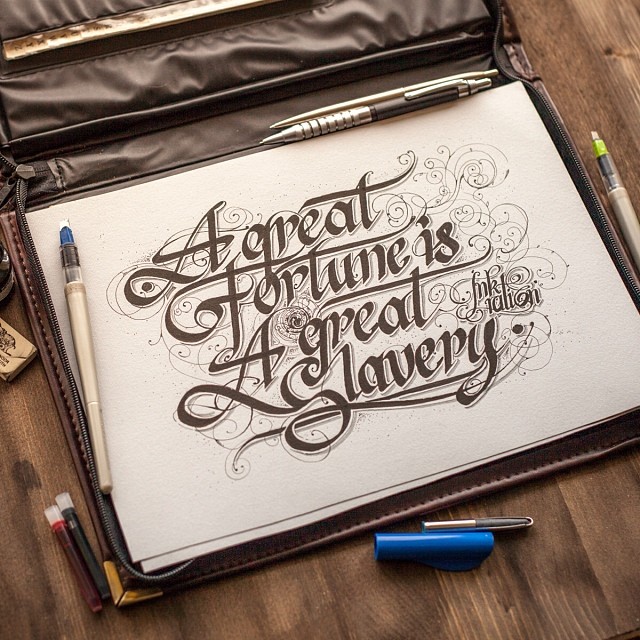 A great
Fortune is
A great
Slavery